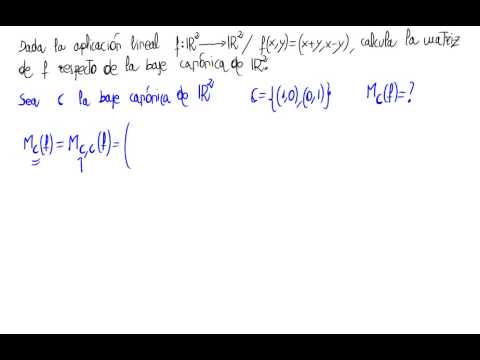 Dada la aplicación lineal f:ℝ²⟶ℝ² / f(x,y)=(x+y,x-y), calcula la matriz
de f respecto de la base canónica de ℝ².
Sea C la base canónica de ℝ² C={(1,0),(0,1)} M_C(f)=?
M_C(f)=M_{C,C}(f)=(